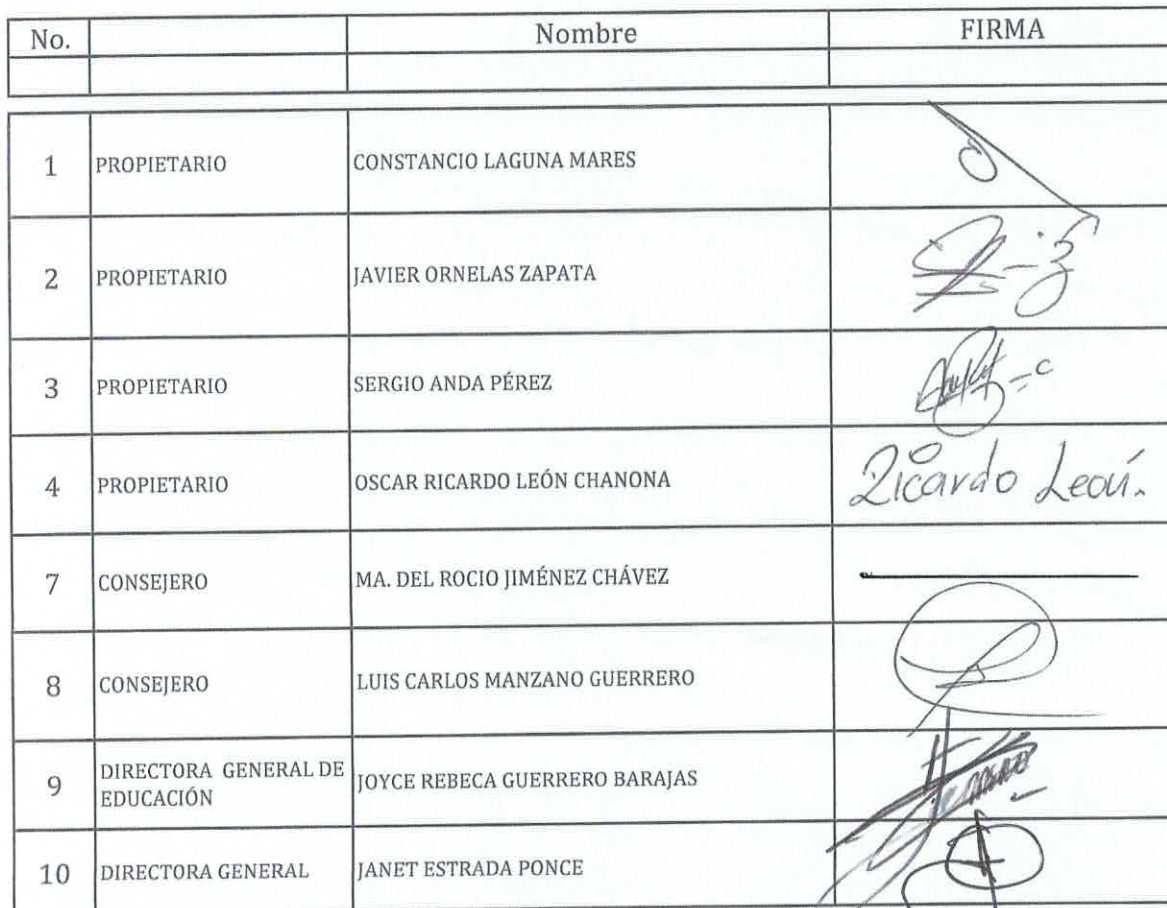 No. Nombre FIRMA
1 PROPIETARIO CONSTANCIO LAGUNA MARES
2 PROPIETARIO JAVIER ORNELAS ZAPATA
3 PROPIETARIO SERGIO ANDA PÉREZ
4 PROPIETARIO OSCAR RICARDO LEÓN CHANONA Ricardo León.
7 CONSEJERO MA. DEL ROCIO JIMÉNEZ CHÁVEZ
8 CONSEJERO LUIS CARLOS MANZANO GUERRERO
9 DIRECTORA GENERAL DE EDUCACIÓN JOYCE REBECA GUERRERO BARAJAS
10 DIRECTORA GENERAL JANET ESTRADA PONCE